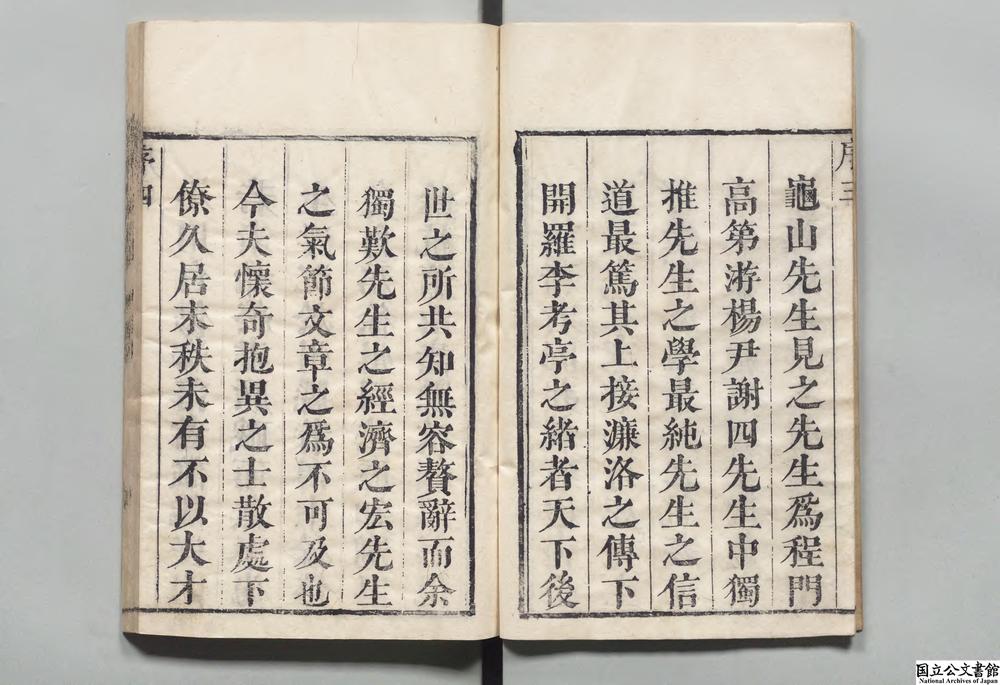 序三
龜山先生見之先生爲程門
高第游楊尹謝四先生中獨
推先生之學最純先生之信
道最篤其上接濂洛之傳下
開羅李考亭之緒者天下後
世之所共知無容贅辭而余
獨歎先生之經濟之宏先生
之氣節文章之爲不可及也
今夫懷奇抱異之士散處下
僚久居末秩未有不以大才
序四
国立公文書館
National Archives of Japan